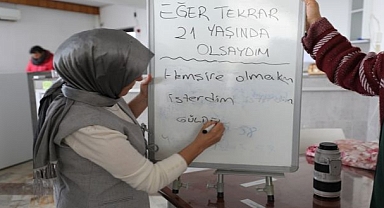 EĞER TEKRAR
21 YAŞINDA
OLSAYDIM
Hemşire olmak
isterdim
GÜLD